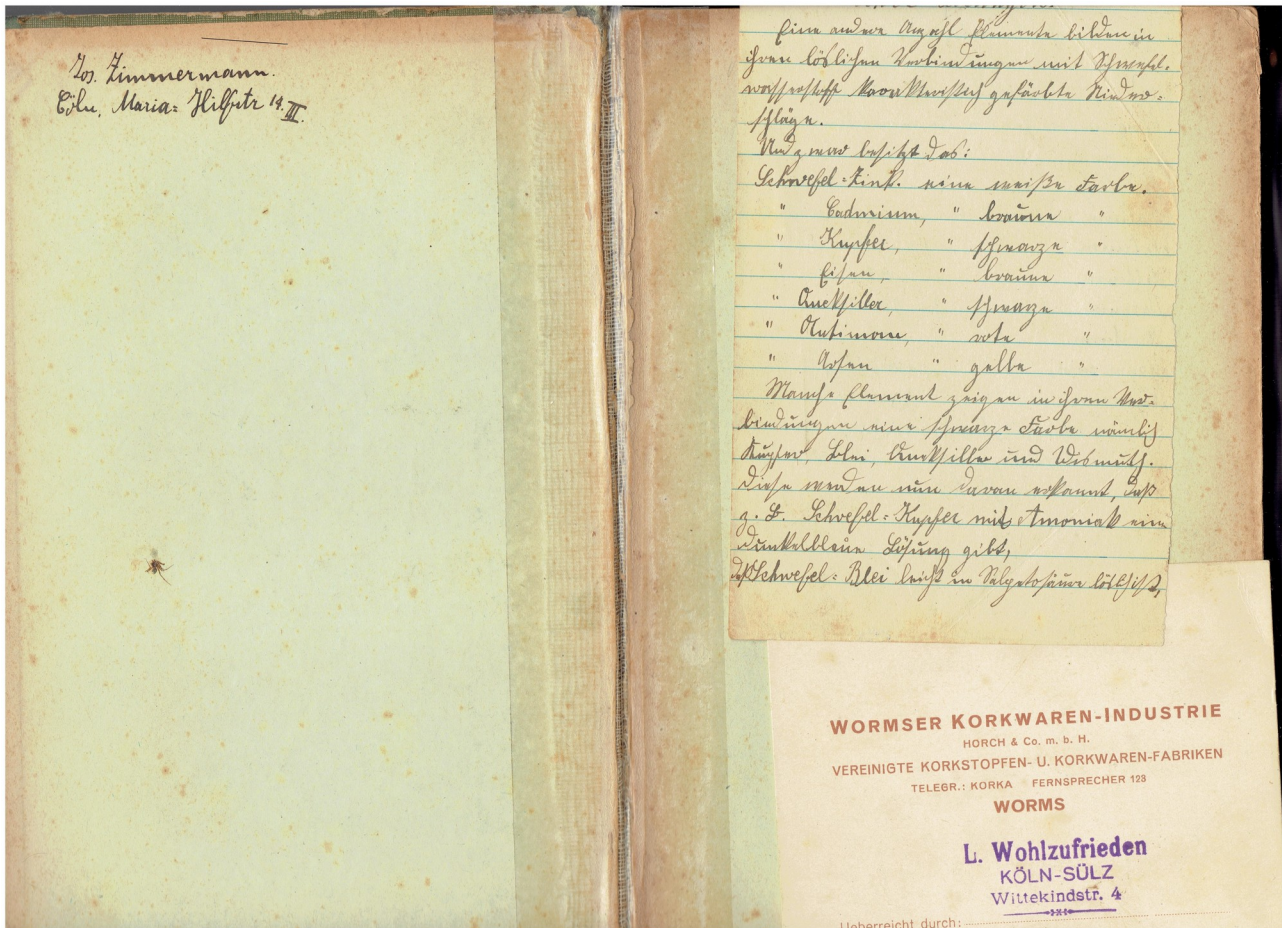 Jos. Zimmermann.
Cöln, Maria=Hilfstr 14. III.
Eine andere Anzahl Elemente bilden in
ihren löslichen Verbindungen mit Schwefel-
wasserstoff karakteristisch gefärbte Nieder-
schläge.
Und zwar besitzt das:
Schwefel=Zink. eine weiße Farbe.
" Cadmium, " braune "
" Kupfer, " schwarze "
" Eisen, " braune "
" Queksilber, " schwarze "
" Antimon, " rote "
" Arsen " gelbe "
Manche Element zeigen in ihren Ver-
bindungen eine schwarze Farbe nämlich
Kupfer, Blei, Queksilber und Wismuth.
Diese werden nun daran erkannt, daß
z. B. Schwefel=Kupfer mit Amoniak eine
dunkelblaue Lösung gibt,
daß Schwefel=Blei leicht in Salpetersäure löslich ist,
WORMSER KORKWAREN-INDUSTRIE
HORCH & Co. m. b. H.
VEREINIGTE KORKSTOPFEN- U. KORKWAREN-FABRIKEN
TELEGR.: KORKA FERNSPRECHER 123
WORMS
L. Wohlzufrieden
KÖLN-SÜLZ
Wittekindstr. 4
Ueberreicht durch: